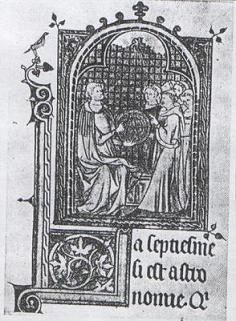 La septiesme
si est astro
nomie. Q